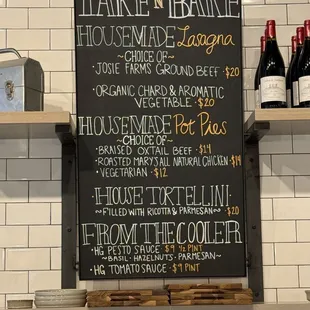 TAKE N BAKE
HOUSEMADE Lasagna
~CHOICE OF~
• JOSIE FARMS GROUND BEEF • $20
• ORGANIC CHARD & AROMATIC
VEGETABLE • $20
HOUSEMADE Pot Pies
~CHOICE OF~
• BRAISED OXTAIL BEEF • $14
• ROASTED MARYS ALL NATURAL CHICKEN • $14
• VEGETARIAN • $12
HOUSE TORTELLINI
~FILLED WITH RICOTTA & PARMESAN~ • $20
FROM THE COOLER
• HG PESTO SAUCE • $9 ½ PINT
~BASIL • HAZELNUTS • PARMESAN~
• HG TOMATO SAUCE • $9 PINT